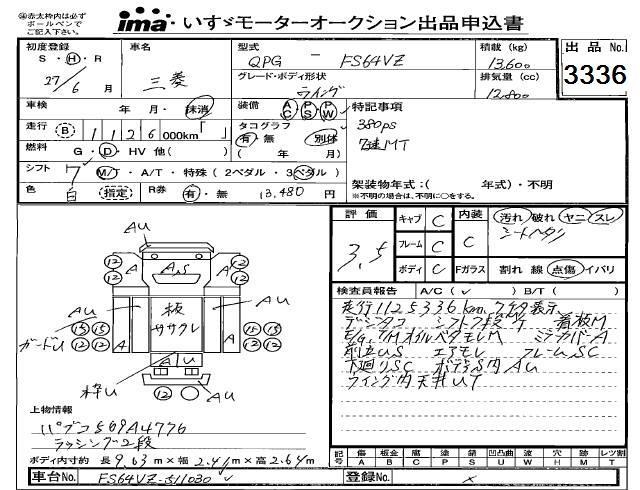 ㊟赤太枠内は必ずボールペンでご記入下さい。
ima いすゞモーターオークション出品申込書
初度登録 S・H・R 27/6月
車名 三菱
型式 QPG － FS64VZ
積載(kg) 13,600
出品No. 3336
グレード・ボディ形状 ウイング
排気量(cc) 12,800
車検 年 月・抹消
装備 AC PS PW
特記事項
380ps
7速MT
走行 B 1126 000km「 」
タコグラフ 有・無 別体 ( 年 月)
燃料 G・D・HV 他( )
シフト 7 M/T・A/T・特殊(2ペダル・3ペダル)
架装物年式:( 年式)・不明
※不明の場合は、不明に○をする。
色 白 指定 R券 有・無 13,480 円
評価 3.5
キャブ C
内装 C
汚れ 破れ ヤニ スレ
シートヘタリ
フレーム C
ボディ C
Fガラス 割れ 線 点傷 イバリ
検査員報告 A/C(✓) B/T( )
走行1125336km
デジタコ 看板M
E/G,T/MオイルベタモレM
エアモレ フレームSC
下廻りSC ボデラS内AU
ウイング内天井UT
AU
12 12 A A,S A 12 12
AU 板 ササクレ AU
ガードU 15 15 12 12 A A 15 15 12 12
A U
枠U 12 AU
上物情報
パブコ
ラッシング2段
ボディ内寸約 長 9.63 m×幅 2.41 m×高 2.64 m
記号 傷A 板金B 腐C 塗P 錆S 凹凸曲U 波W 穴H 跡M レツ割T
車台No. FS64VZ-511030 ✓
登録No. ×